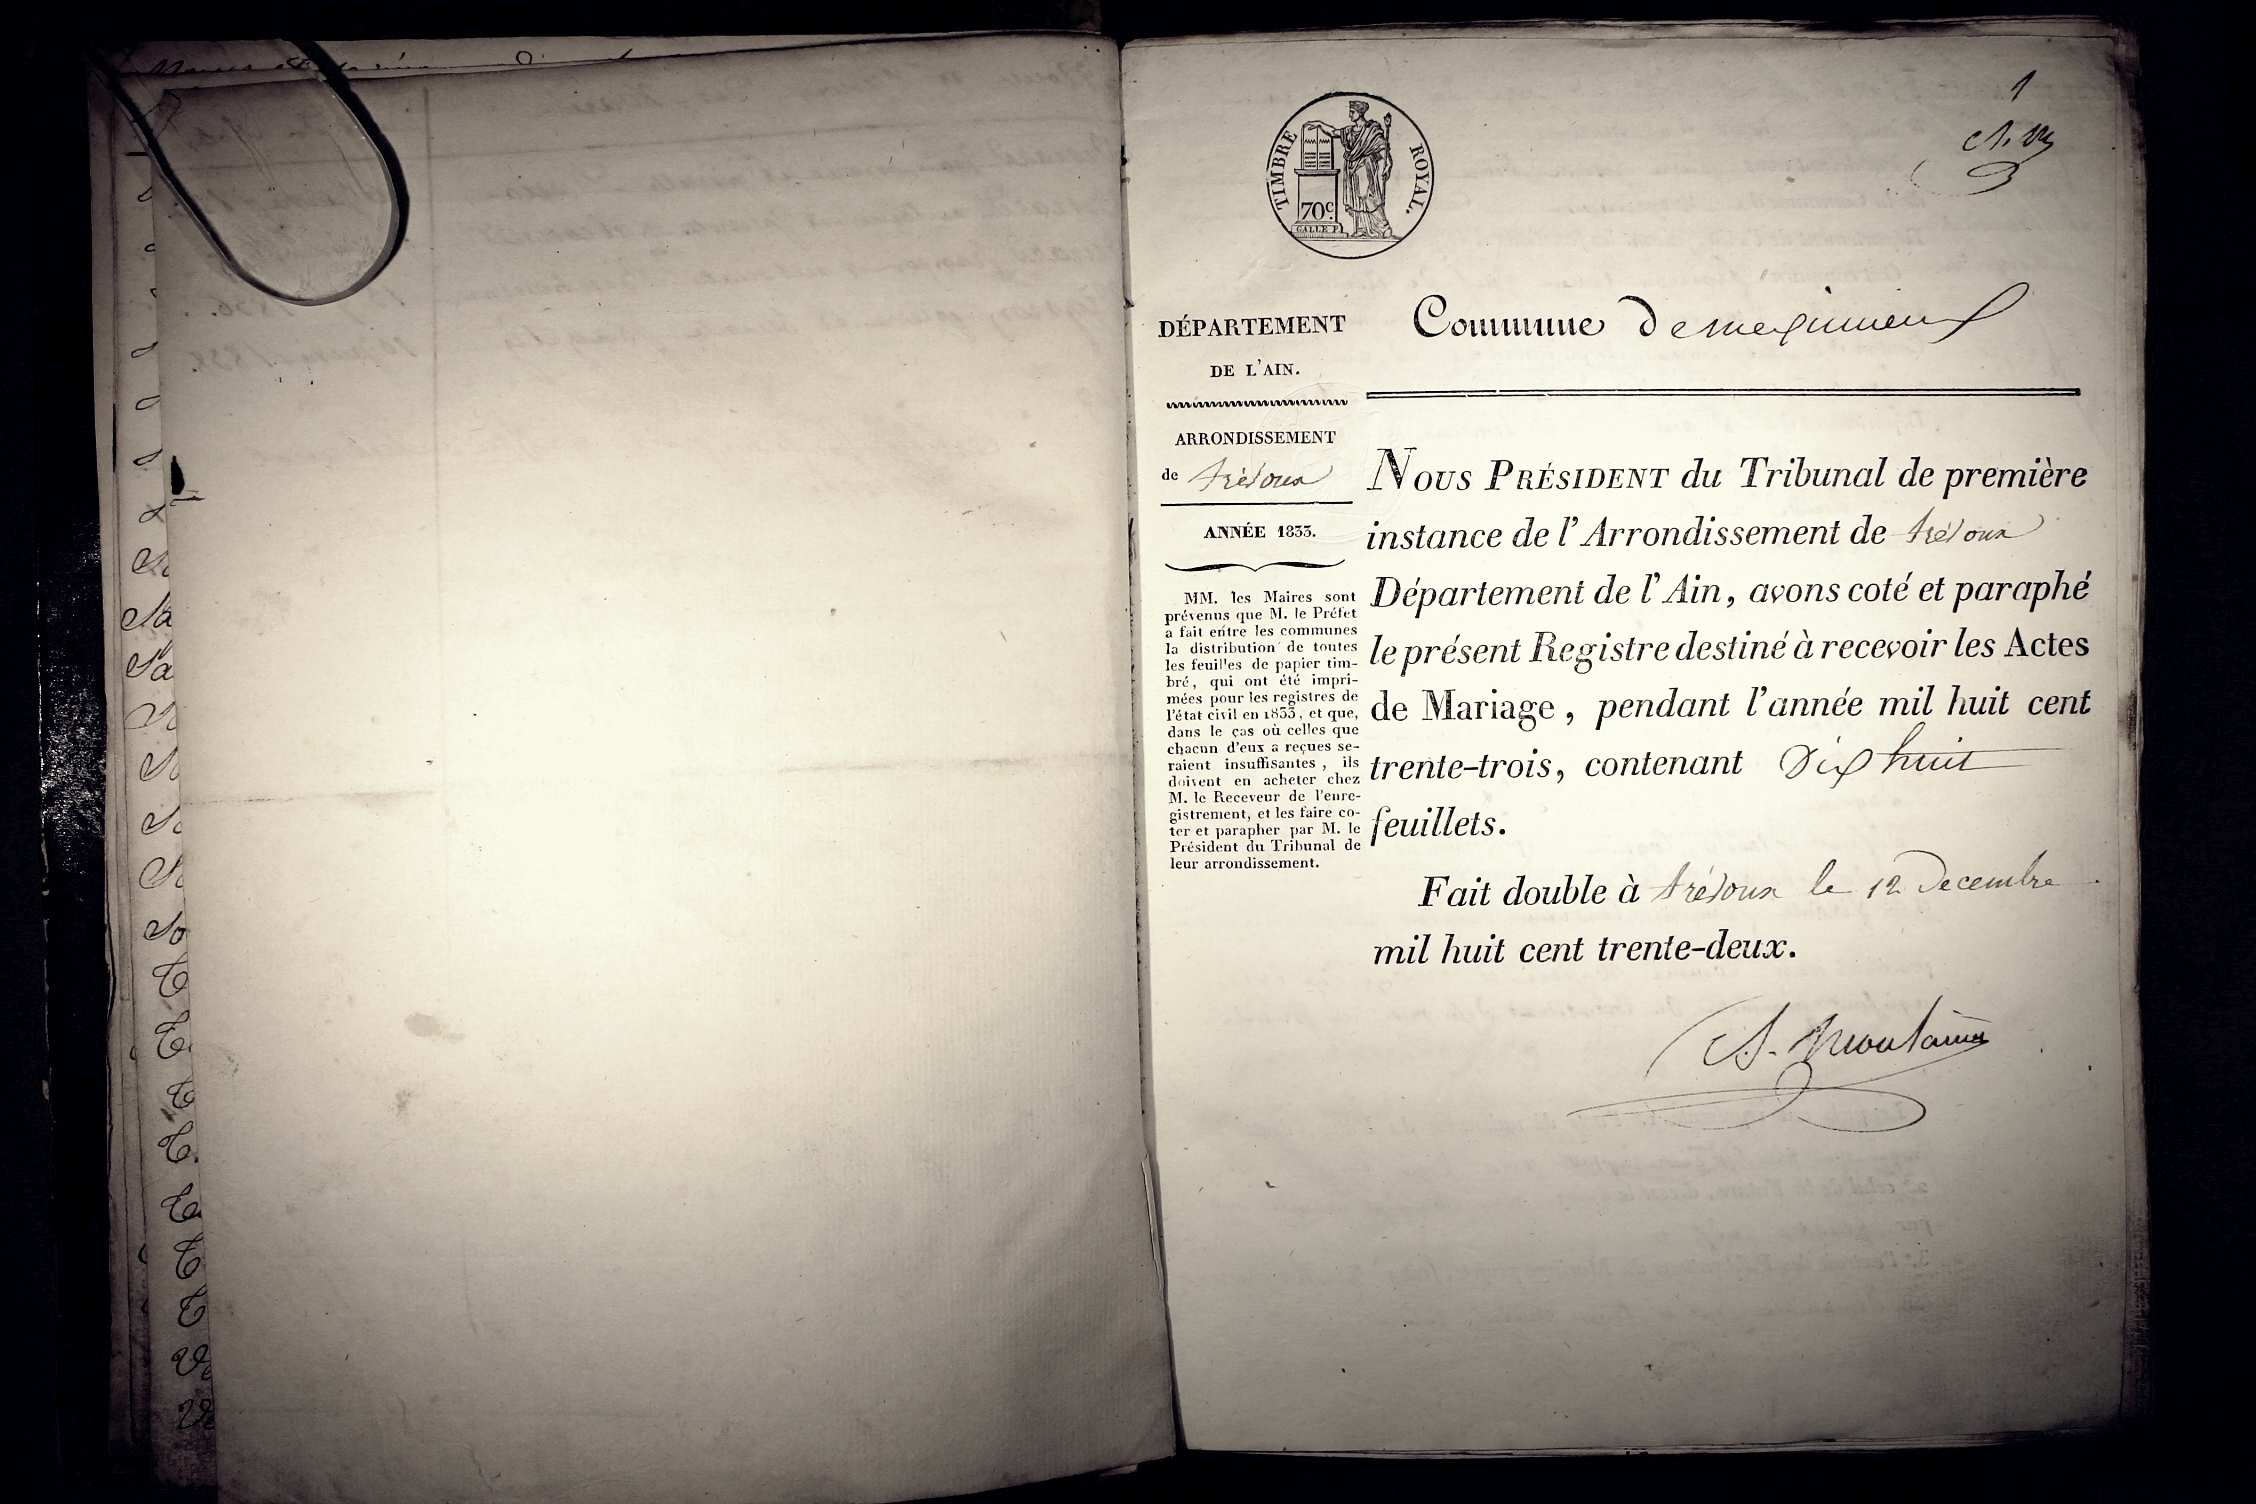 1
TIMBRE ROYAL.
70c.
GALLE F.
DÉPARTEMENT
DE L'AIN.
ARRONDISSEMENT
de trévoux
ANNÉE 1833.
MM. les Maires sont
prévenus que M. le Préfet
a fait entre les communes
la distribution de toutes
les feuilles de papier tim-
bré, qui ont été impri-
mées pour les registres de
l'état civil en 1833, et que,
dans le cas où celles que
chacun d'eux a reçues se-
raient insuffisantes, ils
doivent en acheter chez
M. le Receveur de l'enre-
gistrement, et les faire co-
ter et parapher par M. le
Président du Tribunal de
leur arrondissement.
Commune De meximieux
NOUS PRÉSIDENT du Tribunal de première
instance de l'Arrondissement de trévoux
Département de l'Ain, avons coté et paraphé
le présent Registre destiné à recevoir les Actes
de Mariage, pendant l'année mil huit cent
trente-trois, contenant Dix huit
feuillets.
Fait double à trévoux le 12 Decembre
mil huit cent trente-deux.